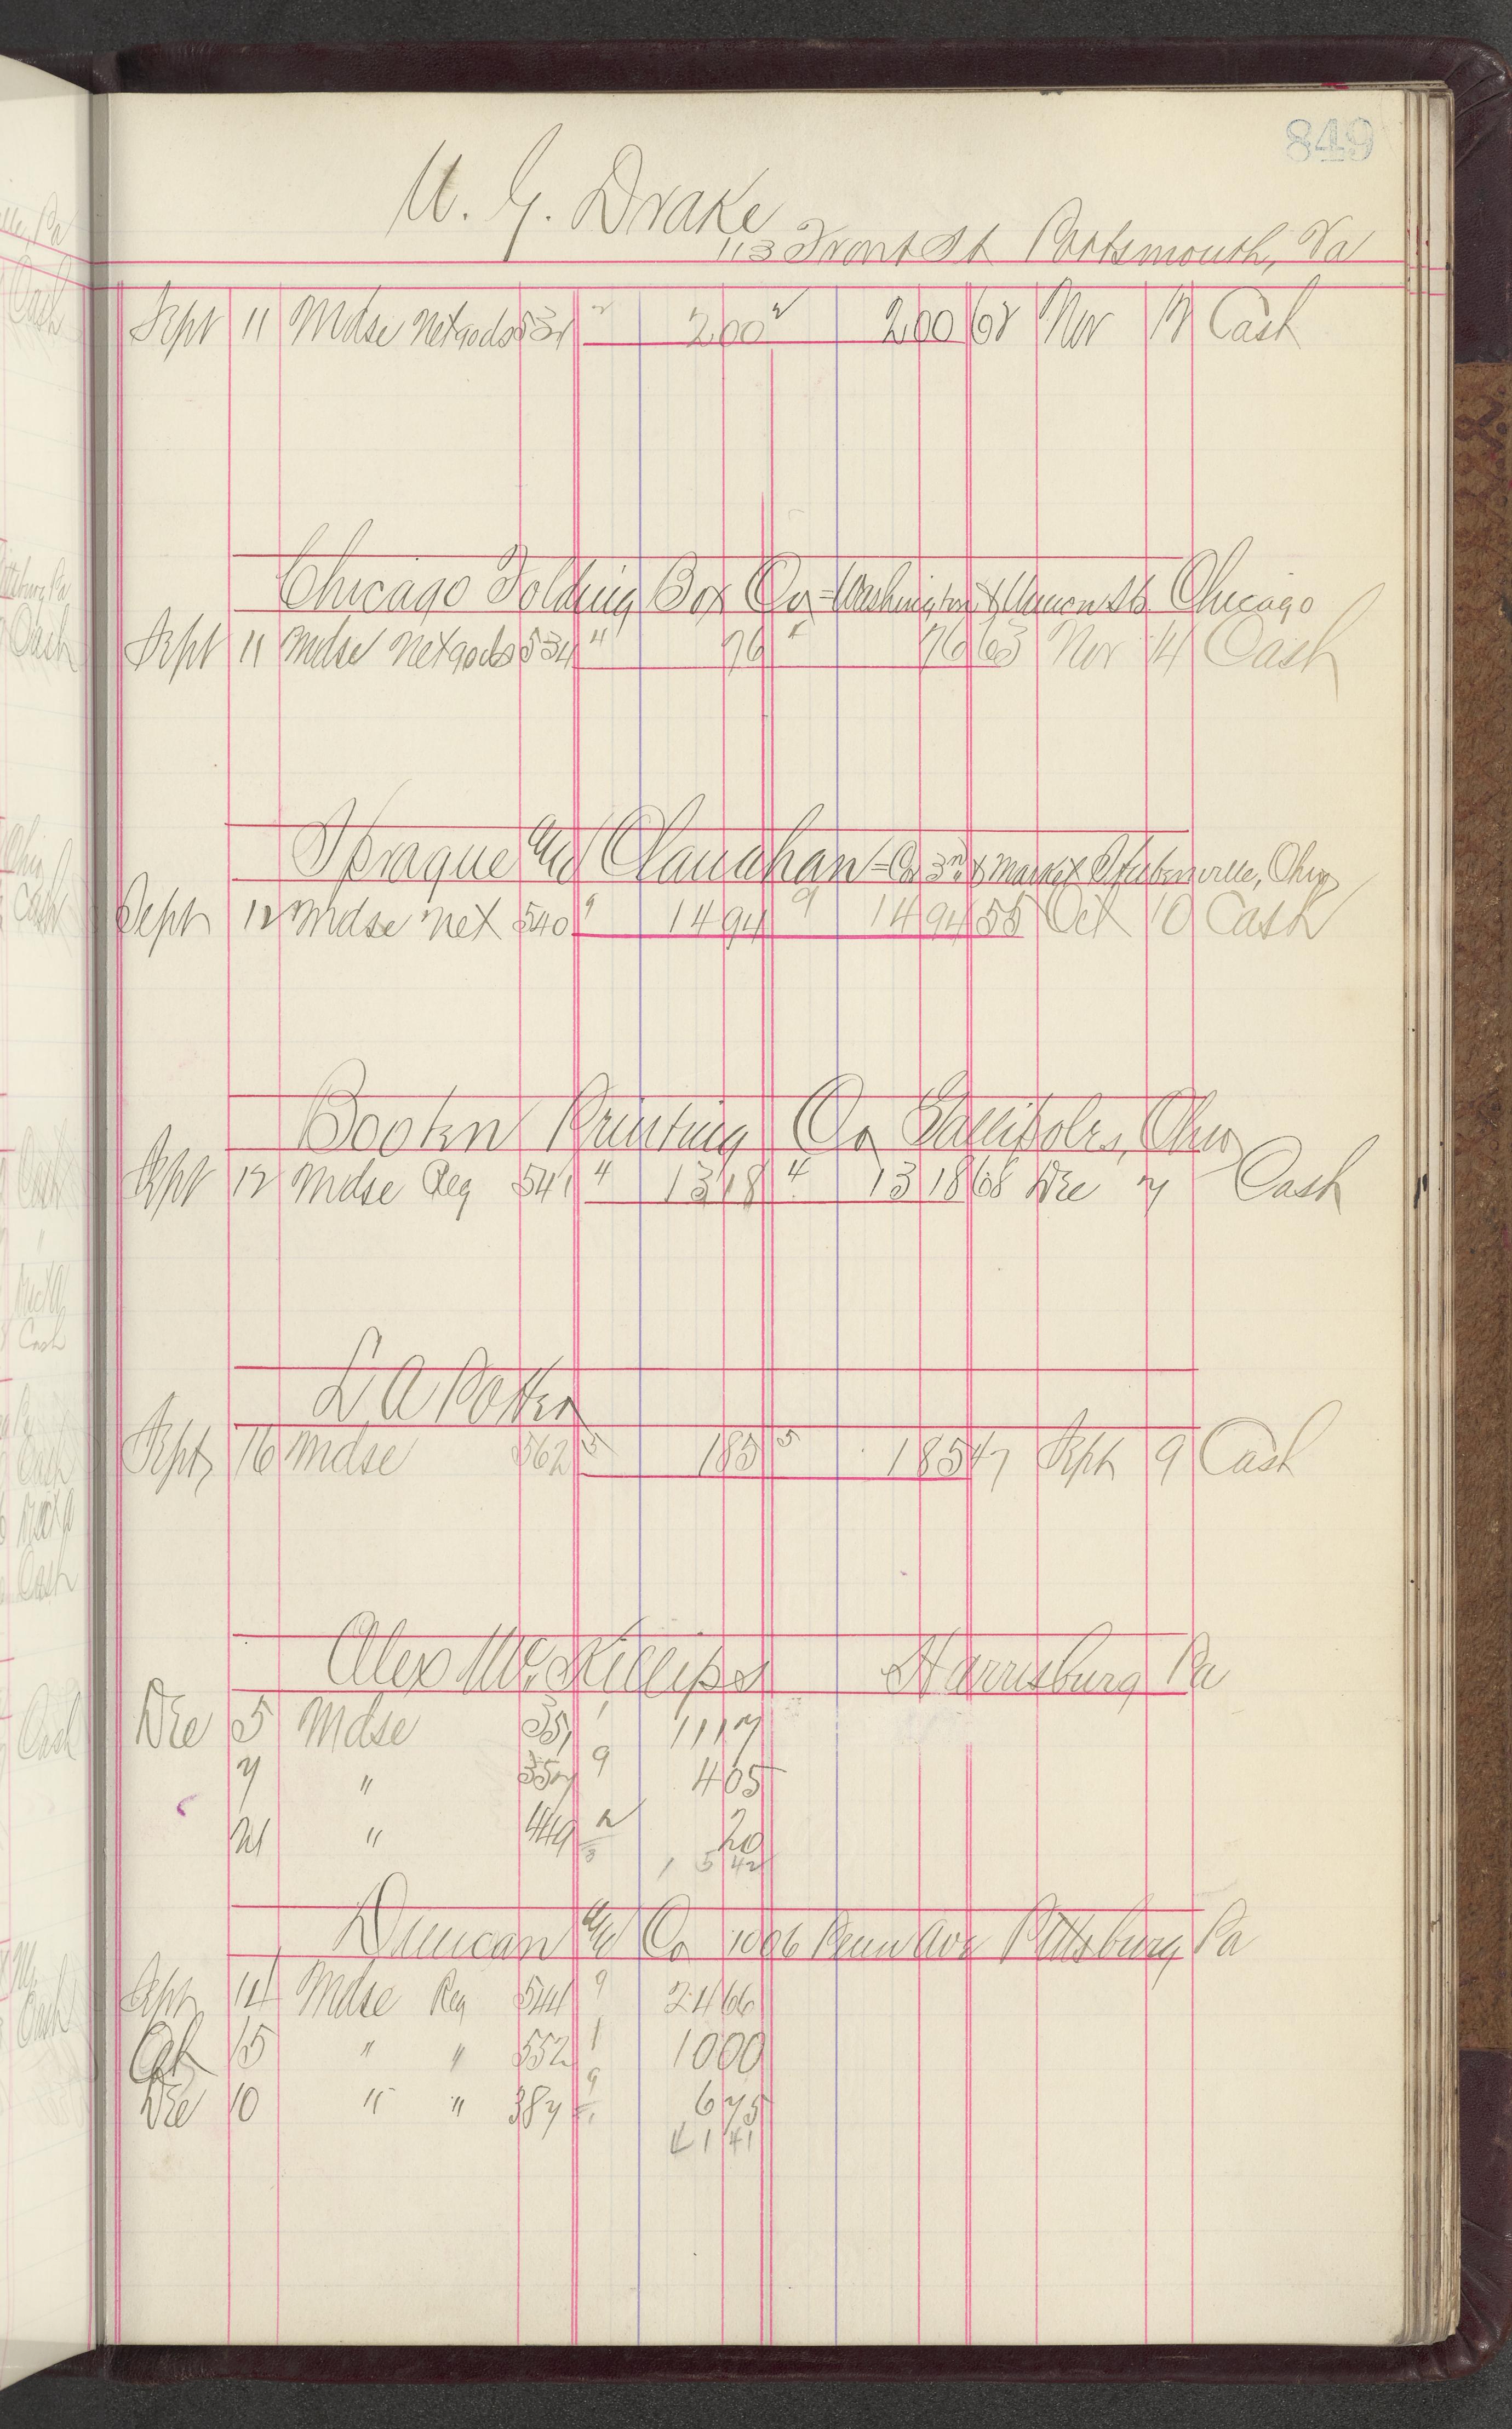 849
U. G. Drake
113 Front St Portsmouth, Va
Sept 11 Mdse Net gods 531 2 200 2 200 62 Nov 12 Cash
Chicago Folding Box Co - Washington & Union Sts Chicago
Sept 11 Mdse Net gods 534 4 76 4 76 63 Nov 14 Cash
Sprague and Clanahan - Co 3rd & Market Steubenville, Ohio
Sept 12 Mdse Net 540 9 14 94 9 14 94 55 Oct 10 Cash
Booten Printing Co Gallipoles, Ohio
Sept 12 Mdse Reg 541 4 13 18 4 13 18 68 Dec 7 Cash
L A Potter
Sept 16 Mdse 562 5 1 85 5 1 85 47 Sept 9 Cash
Alex McKillips Harrisburg Pa
Dec 5 Mdse 351 1 11 17
7 " 357 9 4 05
21 " 449 2 20
3 1 5 42
Duncan and Co 1006 Penn Ave Pittsburg Pa
Sept 14 Mdse Reg 544 9 24 66
Oct 15 " " 552 1 10 00
Dec 10 " " 387 9 6 75
41 41